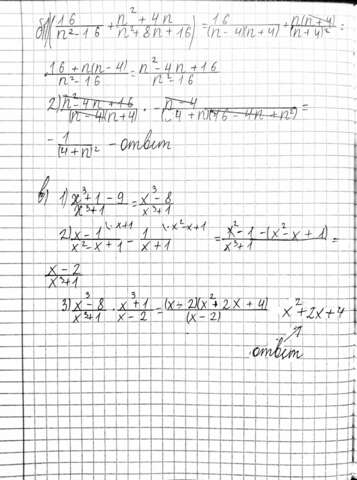 б) 1) (16/(n²-16) + (n²+4n)/(n²+8n+16)) = 16/((n-4)(n+4)) + n(n+4)/(n+4)² =
(16+n(n-4))/(n²-16) = (n²-4n+16)/(n²-16)
2) (n²-4n+16)/((n-4)(n+4)) · -(n-4)/((4+n)(16-4n+n²)) =
- 1/(4+n)² - ответ
в) 1) (x³+1-9)/(x³+1) = (x³-8)/(x³+1)
2) (x-1)/(x²-x+1) - 1/(x+1) = (x²-1-(x²-x+1))/(x³+1) =
(x-2)/(x³+1)
3) (x³-8)/(x³+1) · (x³+1)/(x-2) = (x-2)(x²+2x+4)/(x-2) x²+2x+4
ответ